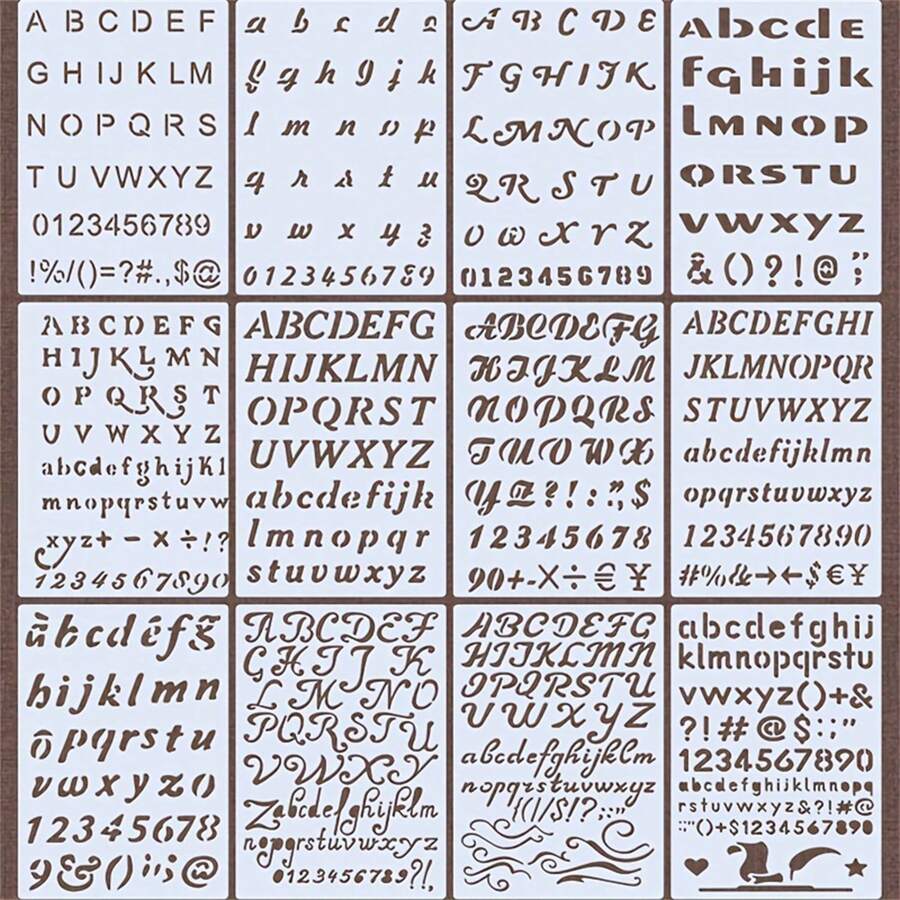 A B C D E F
G H I J K L M
N O P Q R S
T U V W X Y Z
0123456789
!%/()=?#.,$@
a b c d e
f g h i j k
l m n o p
q r s t u
v w x y z
0123456789
A B C D E
F G H I J K
L M N O P
Q R S T U
V W X Y Z
0123456789
a b c d e
f g h i j k
l m n o p
Q R S T U
v w x y z
& ( ) ? ! @ ;
A B C D E F G
H I J K L M N
O P Q R S T
U V W X Y Z
abcdefghijkl
mnopqrstuvw
xyz+ - × ÷ ! ?
1234567890
ABCDEFG
HIJKLMN
OPQRST
UVWXYZ
abcdefijk
lmnopqr
stuvwxyz
ABCDEFG
HIJKLM
NOPQRS
TUVWX
YZ?!:;,$
12345678
90+-×÷€¥
ABCDEFGHI
JKLMNOPQR
STUVWXYZ
abcdefijklmn
opqrstuvwxyz
1234567890
#%&→←$€¥
àbcdéfğ
hijklmn
ôpqrstu
vwxyzo
12345678
9&();@
ABCDEF
GHIJK
LMNO
PQRSTU
VWXY
Zabcdefghijklm
nopqrstuvwxyz
0123456789?!,
ABCDEFG
HIJKLMN
OPQRSTU
VWXYZ
abcdefghijklm
nopqrstuvwxyz
!()/$!?;:"
abcdefghij
klmnopqrstu
vwxyz()+&
?!#@$:;"
1234567890
abcdefghijklmnopq
rstuvwxyz&?!#@
:;"()+$1234567890